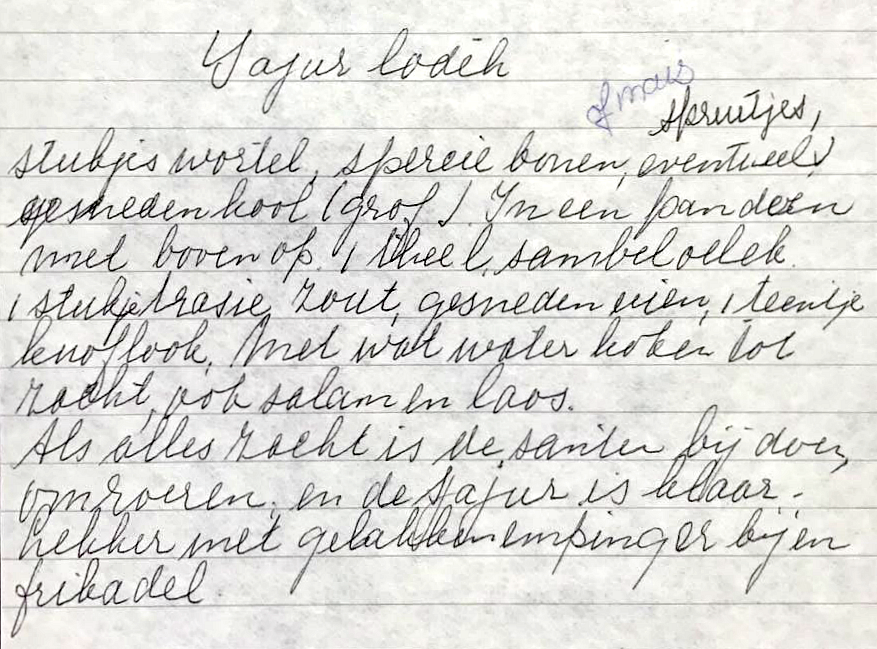 Sajur lodèh
of mais
spruitjes,
stukjes wortel, spercie bonen, eventueel
gesneden kool (grof). In een pan doen
met boven op. 1 theel, sambeloelek.
1 stukje trasie, zout, gesneden uien, 1 teentje
knoflook. Met wat water koken tot
zacht, ook salam en laos.
Als alles zacht is de santen bij doen,
omroeren, en de sajur is klaar.
Lekker met gebakken empinger er bij en
frikadel